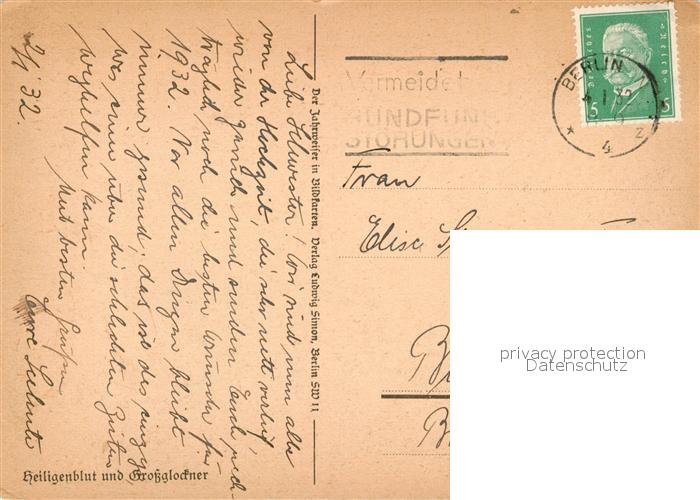 2/1 32.
Liebe Schwester! Wir sind nun alle
von der Hochzeit, die sehr nett verlief,
wieder zurück und senden Euch nach-
träglich noch die besten Wünsche für
1932. Vor allen Dingen bleibt
immer gesund, das ist das einzige,
was einen über die schlechten Zeiten
weghelfen kann.
Mit besten Grüßen
Eure
Heiligenblut und Großglockner
Der Jahrweiser in Bildkarten. Verlag Ludwig Simon, Berlin SW 11
Vermeidet
RUNDFUNK
STÖRUNGEN
Deutsches Reich
5 5
BERLIN
1 32
* 4 z
Frau
Elise
privacy protection
Datenschutz